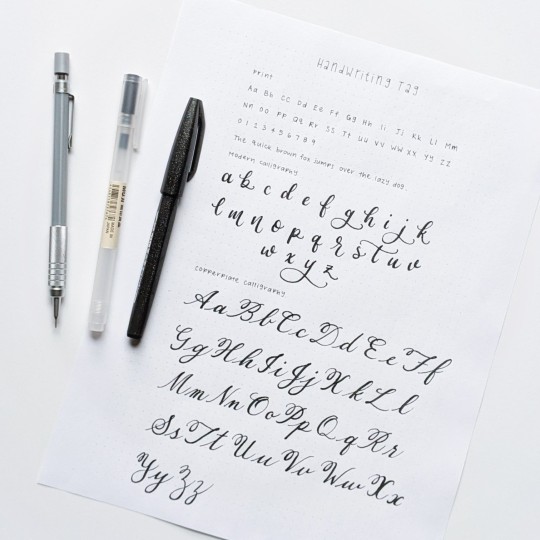 Handwriting Tag
Print
Aa Bb Cc Dd Ee Ff Gg Hh Ii Jj Kk Ll Mm
Nn Oo Pp Qq Rr Ss Tt Uu Vv Ww Xx Yy Zz
0 1 2 3 4 5 6 7 8 9
The quick brown fox jumps over the lazy dog.
Modern calligraphy
a b c d e f g h i j k
l m n o p q r s t u v
w x y z
copperplate calligraphy
Aa Bb Cc Dd Ee Ff
Gg Hh Ii Jj Kk Ll
Mm Nn Oo Pp Qq Rr
Ss Tt Uu Vv Ww Xx
Yy Zz